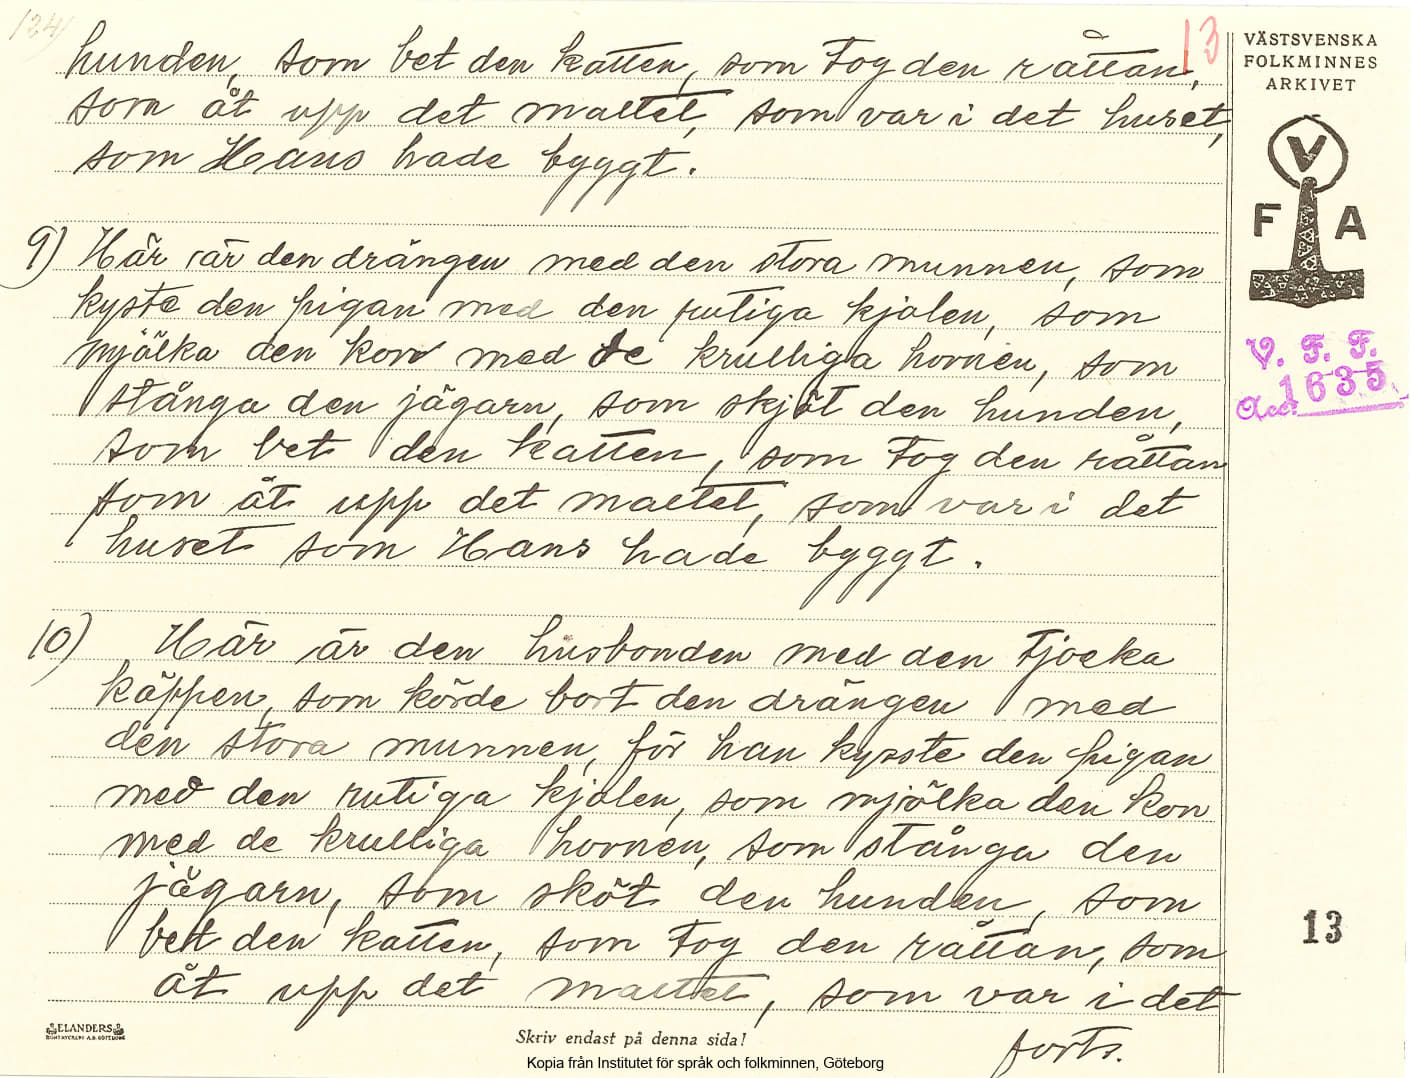 124)
13
hunden, som bet den katten, som tog den råttan,
som åt upp det maltet, som var i det huset,
som Hans hade byggt.
9) Här är den drängen med den stora munnen, som
kyste den pigan med den rutiga kjolen, som
mjölka den kon med de krulliga hornen, som
stånga den jägarn, som skjöt den hunden,
som bet den katten, som tog den råttan
som åt upp det maltet, som var i det
huset som Hans hade byggt.
10) Här är den husbonden med den tjocka
käppen, som körde bort den drängen med
den stora munnen, för han kysste den pigan
med den rutiga kjolen, som mjölka den kon
med de krulliga hornen, som stånga den
jägarn, som sköt den hunden, som
bet den katten, som tog den råttan, som
åt upp det maltet, som var i det
forts.
VÄSTSVENSKA
FOLKMINNES
ARKIVET
V
F A
V. F. F.
Acc. 1635
13
ELANDERS
BOKTRYCKERI A.B. GÖTEBORG
Skriv endast på denna sida!
Kopia från Institutet för språk och folkminnen, Göteborg